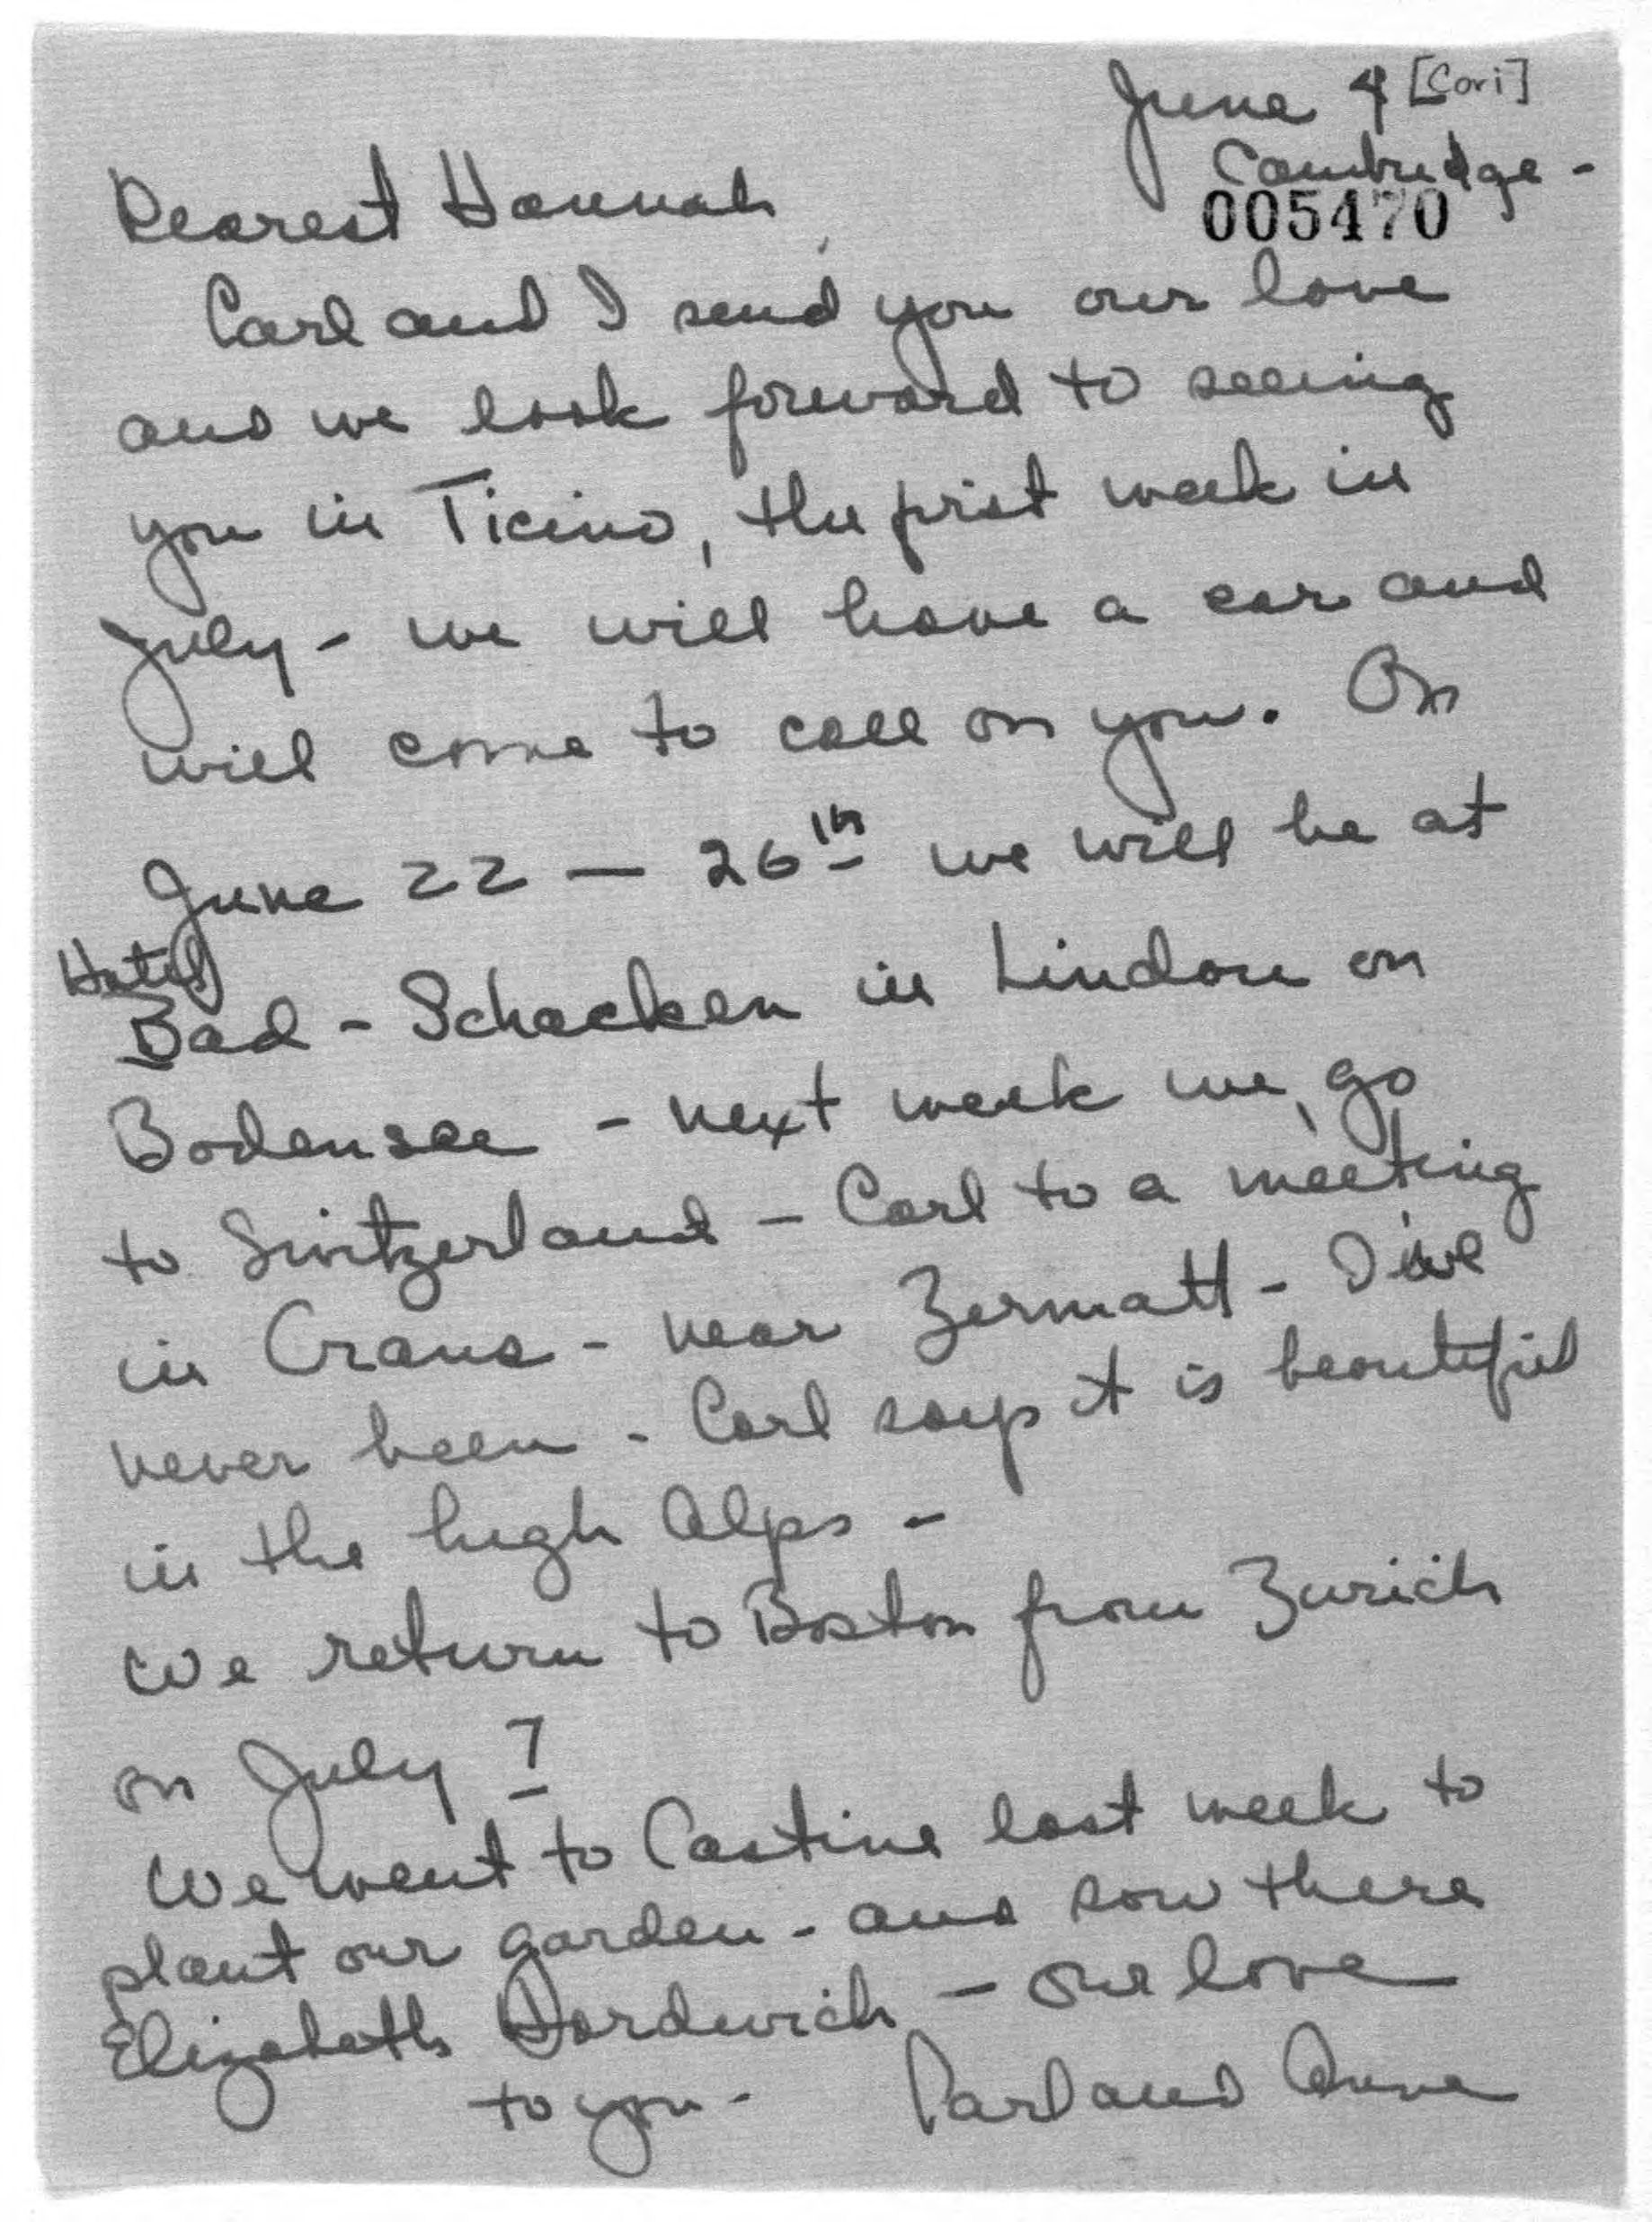 June 4 [Cori]
Cambridge -
005470
Dearest Hannah
Carl and I send you our love
and we look forward to seeing
you in Ticino, the first week in
July - we will have a car and
will come to call on you. On
June 22 — 26th we will be at
Hotel
Bad - Schacken in Lindau on
Bodensee - next week we go
to Switzerland - Carl to a meeting
in Crans - near Zermatt - I've
never been - Carl says it is beautiful
in the high Alps -
We return to Boston from Zurich
on July 7
We went to Castine last week to
plant our garden - and saw there
Elizabeth Hardwich - our love
to you - Carl and Anne